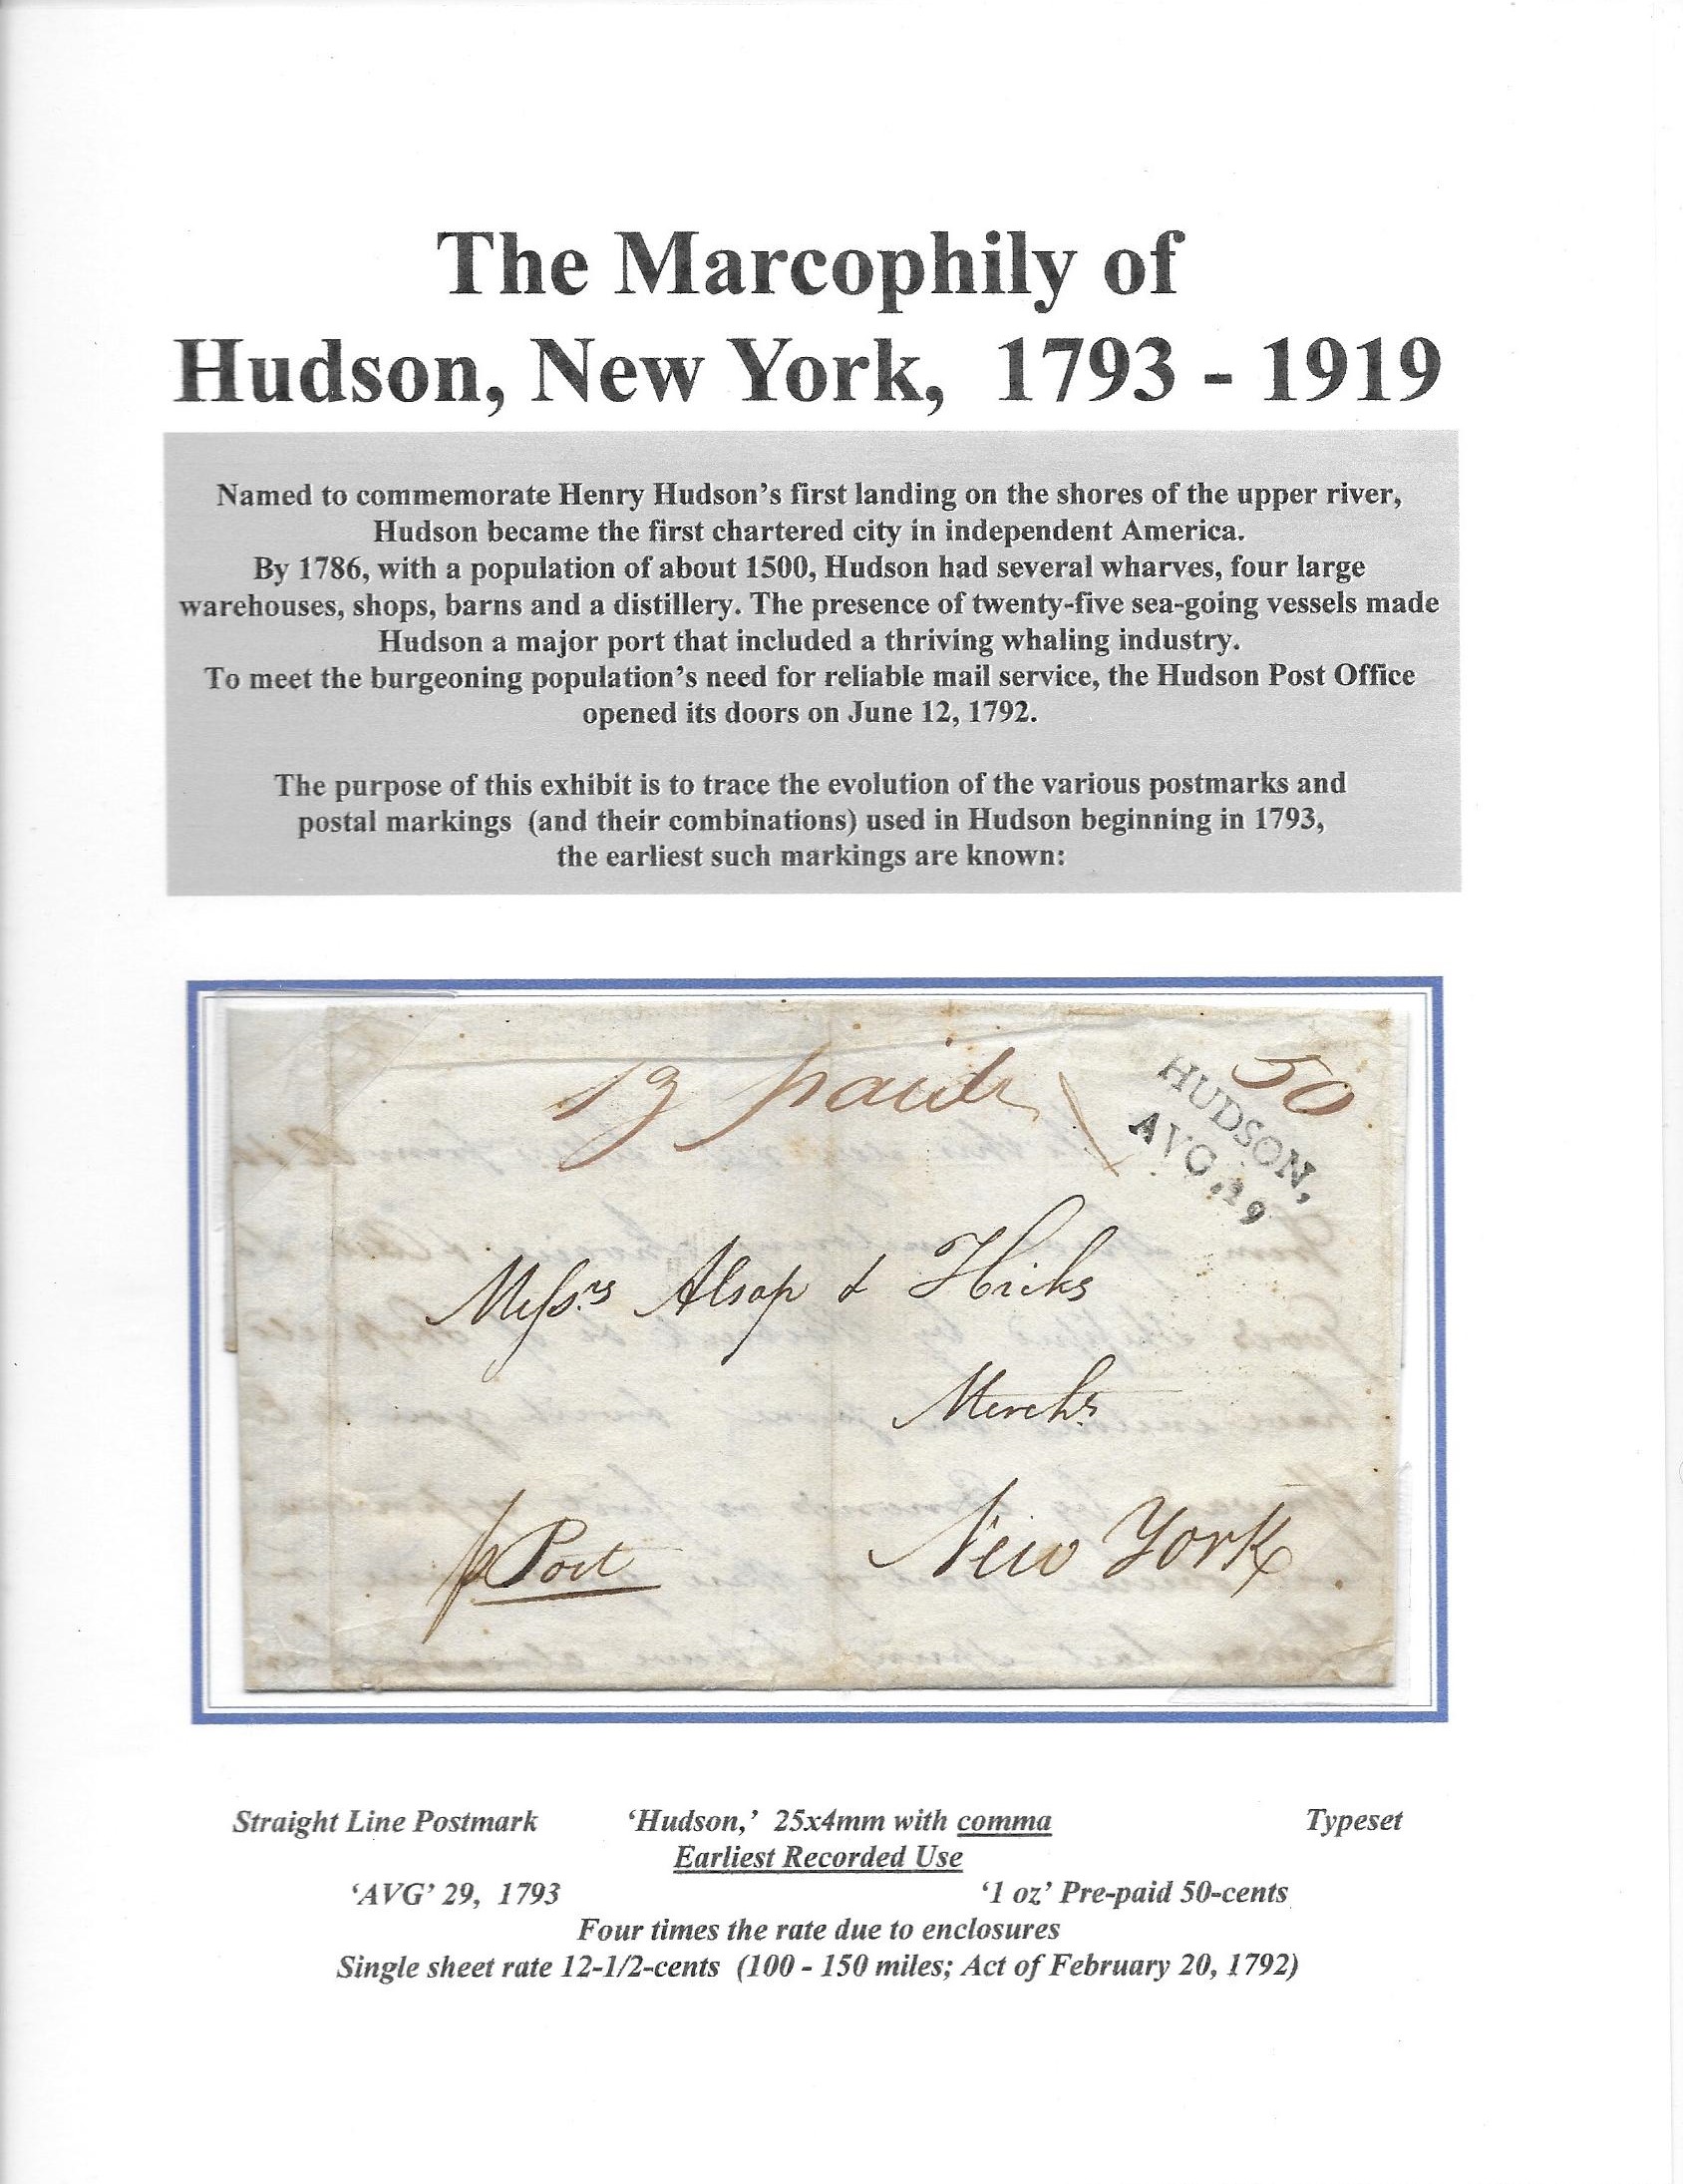 The Marcophily of
Hudson, New York, 1793 - 1919
Named to commemorate Henry Hudson's first landing on the shores of the upper river,
Hudson became the first chartered city in independent America.
By 1786, with a population of about 1500, Hudson had several wharves, four large
warehouses, shops, barns and a distillery. The presence of twenty-five sea-going vessels made
Hudson a major port that included a thriving whaling industry.
To meet the burgeoning population's need for reliable mail service, the Hudson Post Office
opened its doors on June 12, 1792.
The purpose of this exhibit is to trace the evolution of the various postmarks and
postal markings (and their combinations) used in Hudson beginning in 1793,
the earliest such markings are known:
paid 50
HUDSON,
AVG, 29
Messrs Alsop & Hicks
Merchts
New York
p Post
Straight Line Postmark 'Hudson,' 25x4mm with comma Typeset
Earliest Recorded Use
'AVG' 29, 1793 '1 oz' Pre-paid 50-cents
Four times the rate due to enclosures
Single sheet rate 12-1/2-cents (100 - 150 miles; Act of February 20, 1792)